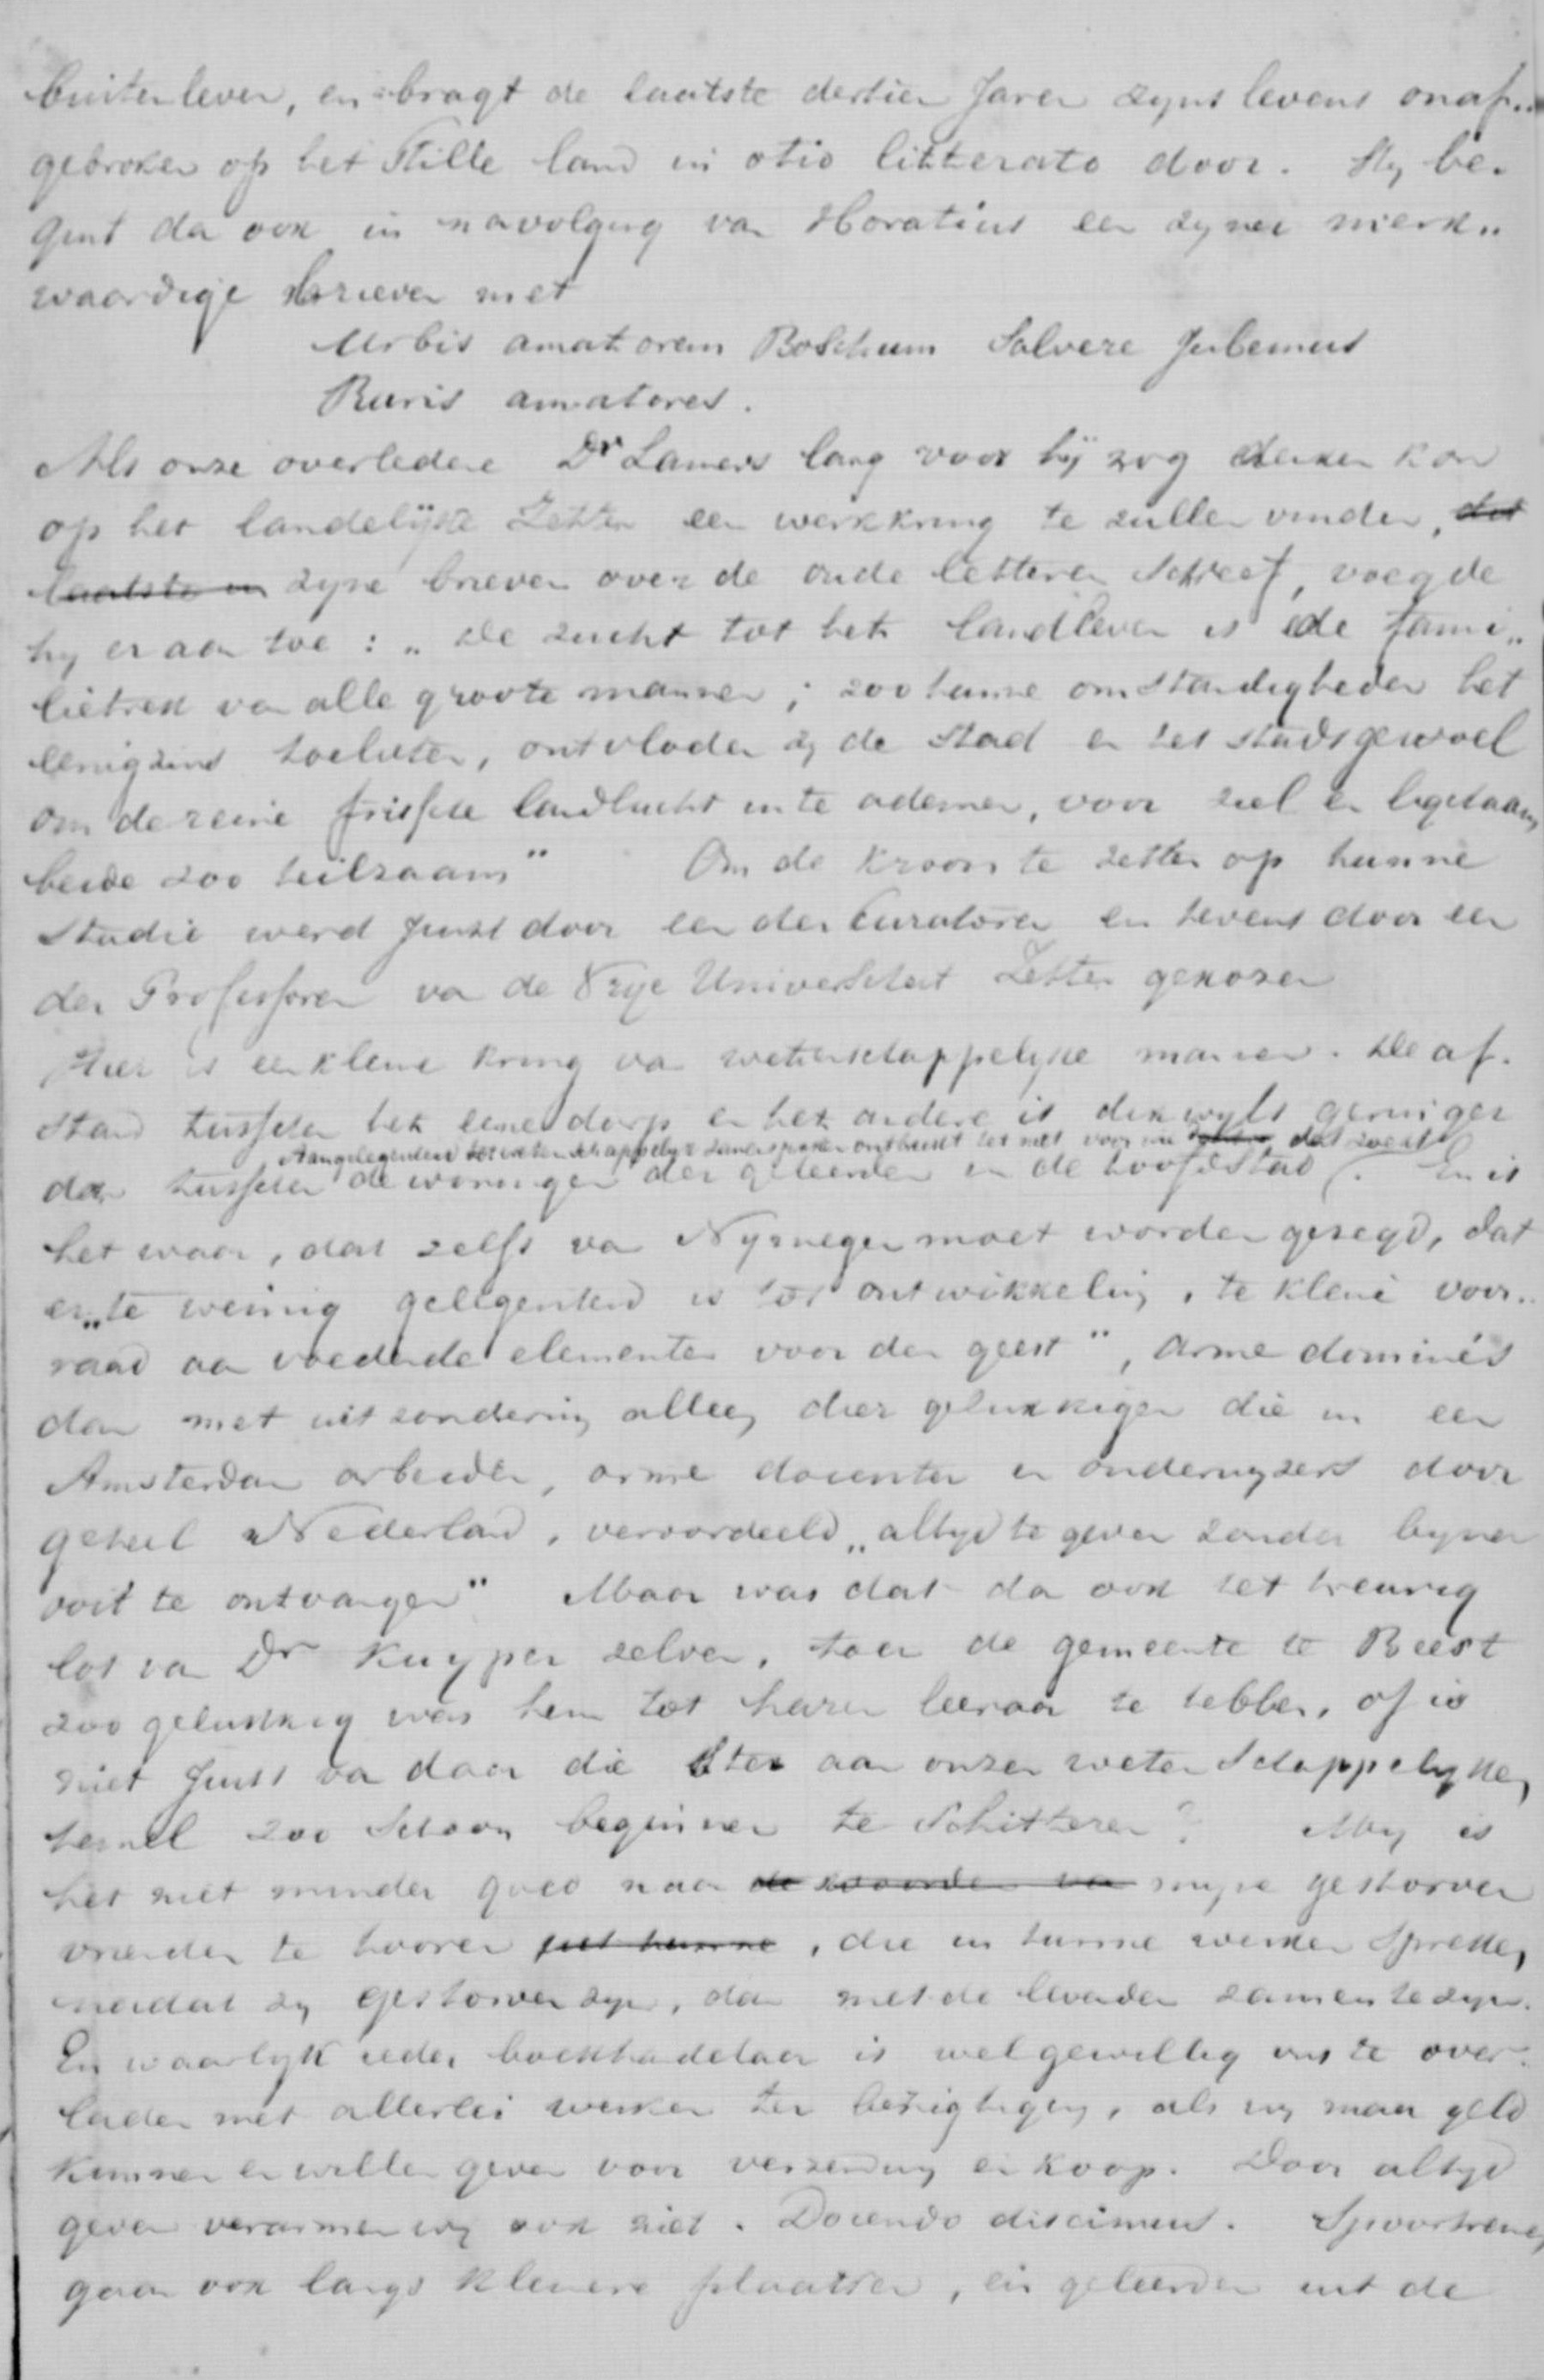 buitenleven, en bragt de laatste dertien Jaren zyns levens onaf„
gebroken op het Stille land in otio litterato door. Hy be„
gint dan ook in navolging van Horatius een zyner merk„
waardige brieven met
Urbis amatorem Boschum Salvere Jubemus
Ruris amatores.
Als onze overledene Dr Lamers lang voor hij nog denken kon
op het landelijke Zetten een werkkring te zullen vinden, dat
laatste in zyne brieven over de oude letteren Schreef, voegde
hy er aan toe: „De zucht tot het landleven is de fami„
lietrek van alle groote mannen; zoo hunne omstandigheden het
eenigzins toelieten, ontvloden zy de Stad en het stadsgewoel
om de reine frissche landlucht in te ademen, voor ziel en ligchaam
beide zoo heilzaam" Om de kroon te zetten op hunne
Studie werd Juist door een der Curatoren en tevens door een
der Professoren van de Vrye Universiteit Zetten gekozen
Hier is een kleine kring van wetenschappelyke mannen. De af„
stand tusschen het eene dorp en het andere is dikwyls geringer
Aangelegenheid tot wetenschappelyk zamenspreken ontbreekt het niet voor wie dat zoekt
dan tusschen de woningen der geleerden in de hoofdstad. En is
het waar, dat zelfs van Nymegen moet worden gezegd, dat
er „te weinig gelegenheid is tot ontwikkeling, te kleine voor„
raad aan voedende elementen voor den geest", arme dominé's
dan met uitzondering alleen dier gelukkigen die in een
Amsterdam arbeiden, arme docenten en onderwyzers door
geheel Nederland, veroordeeld „altyd te geven zonder byna
ooit te ontvangen" Maar was dat dan ook het treurig
lot van Dr Kuyper zelven, toen de gemeente te Beest
zoo gelukkig was hem tot haren leeraar te hebben, of is
niet Juist van daar die Ster aan onzen wetenschappelyken
hemel zoo Schoon beginnen te Schitteren? My is
het niet minder goed naar de woorden van myne gestorven
vrienden te hooren uit hunne, die in hunne werken Spreken,
nadat zy gestorven zyn, dan met de levenden zamen te zyn.
En waarlyk ieder boekhandelaar is wel gewillig ons te over„
laden met allerlei werken ter bezigtiging, als wy maar geld
kunnen en willen geven voor verzending en koop. Door altyd
geven verarmen wy ook niet. Docendo discimus. Spoortreinen
gaan ook langs kleinere plaatsen, en geleerden uit de